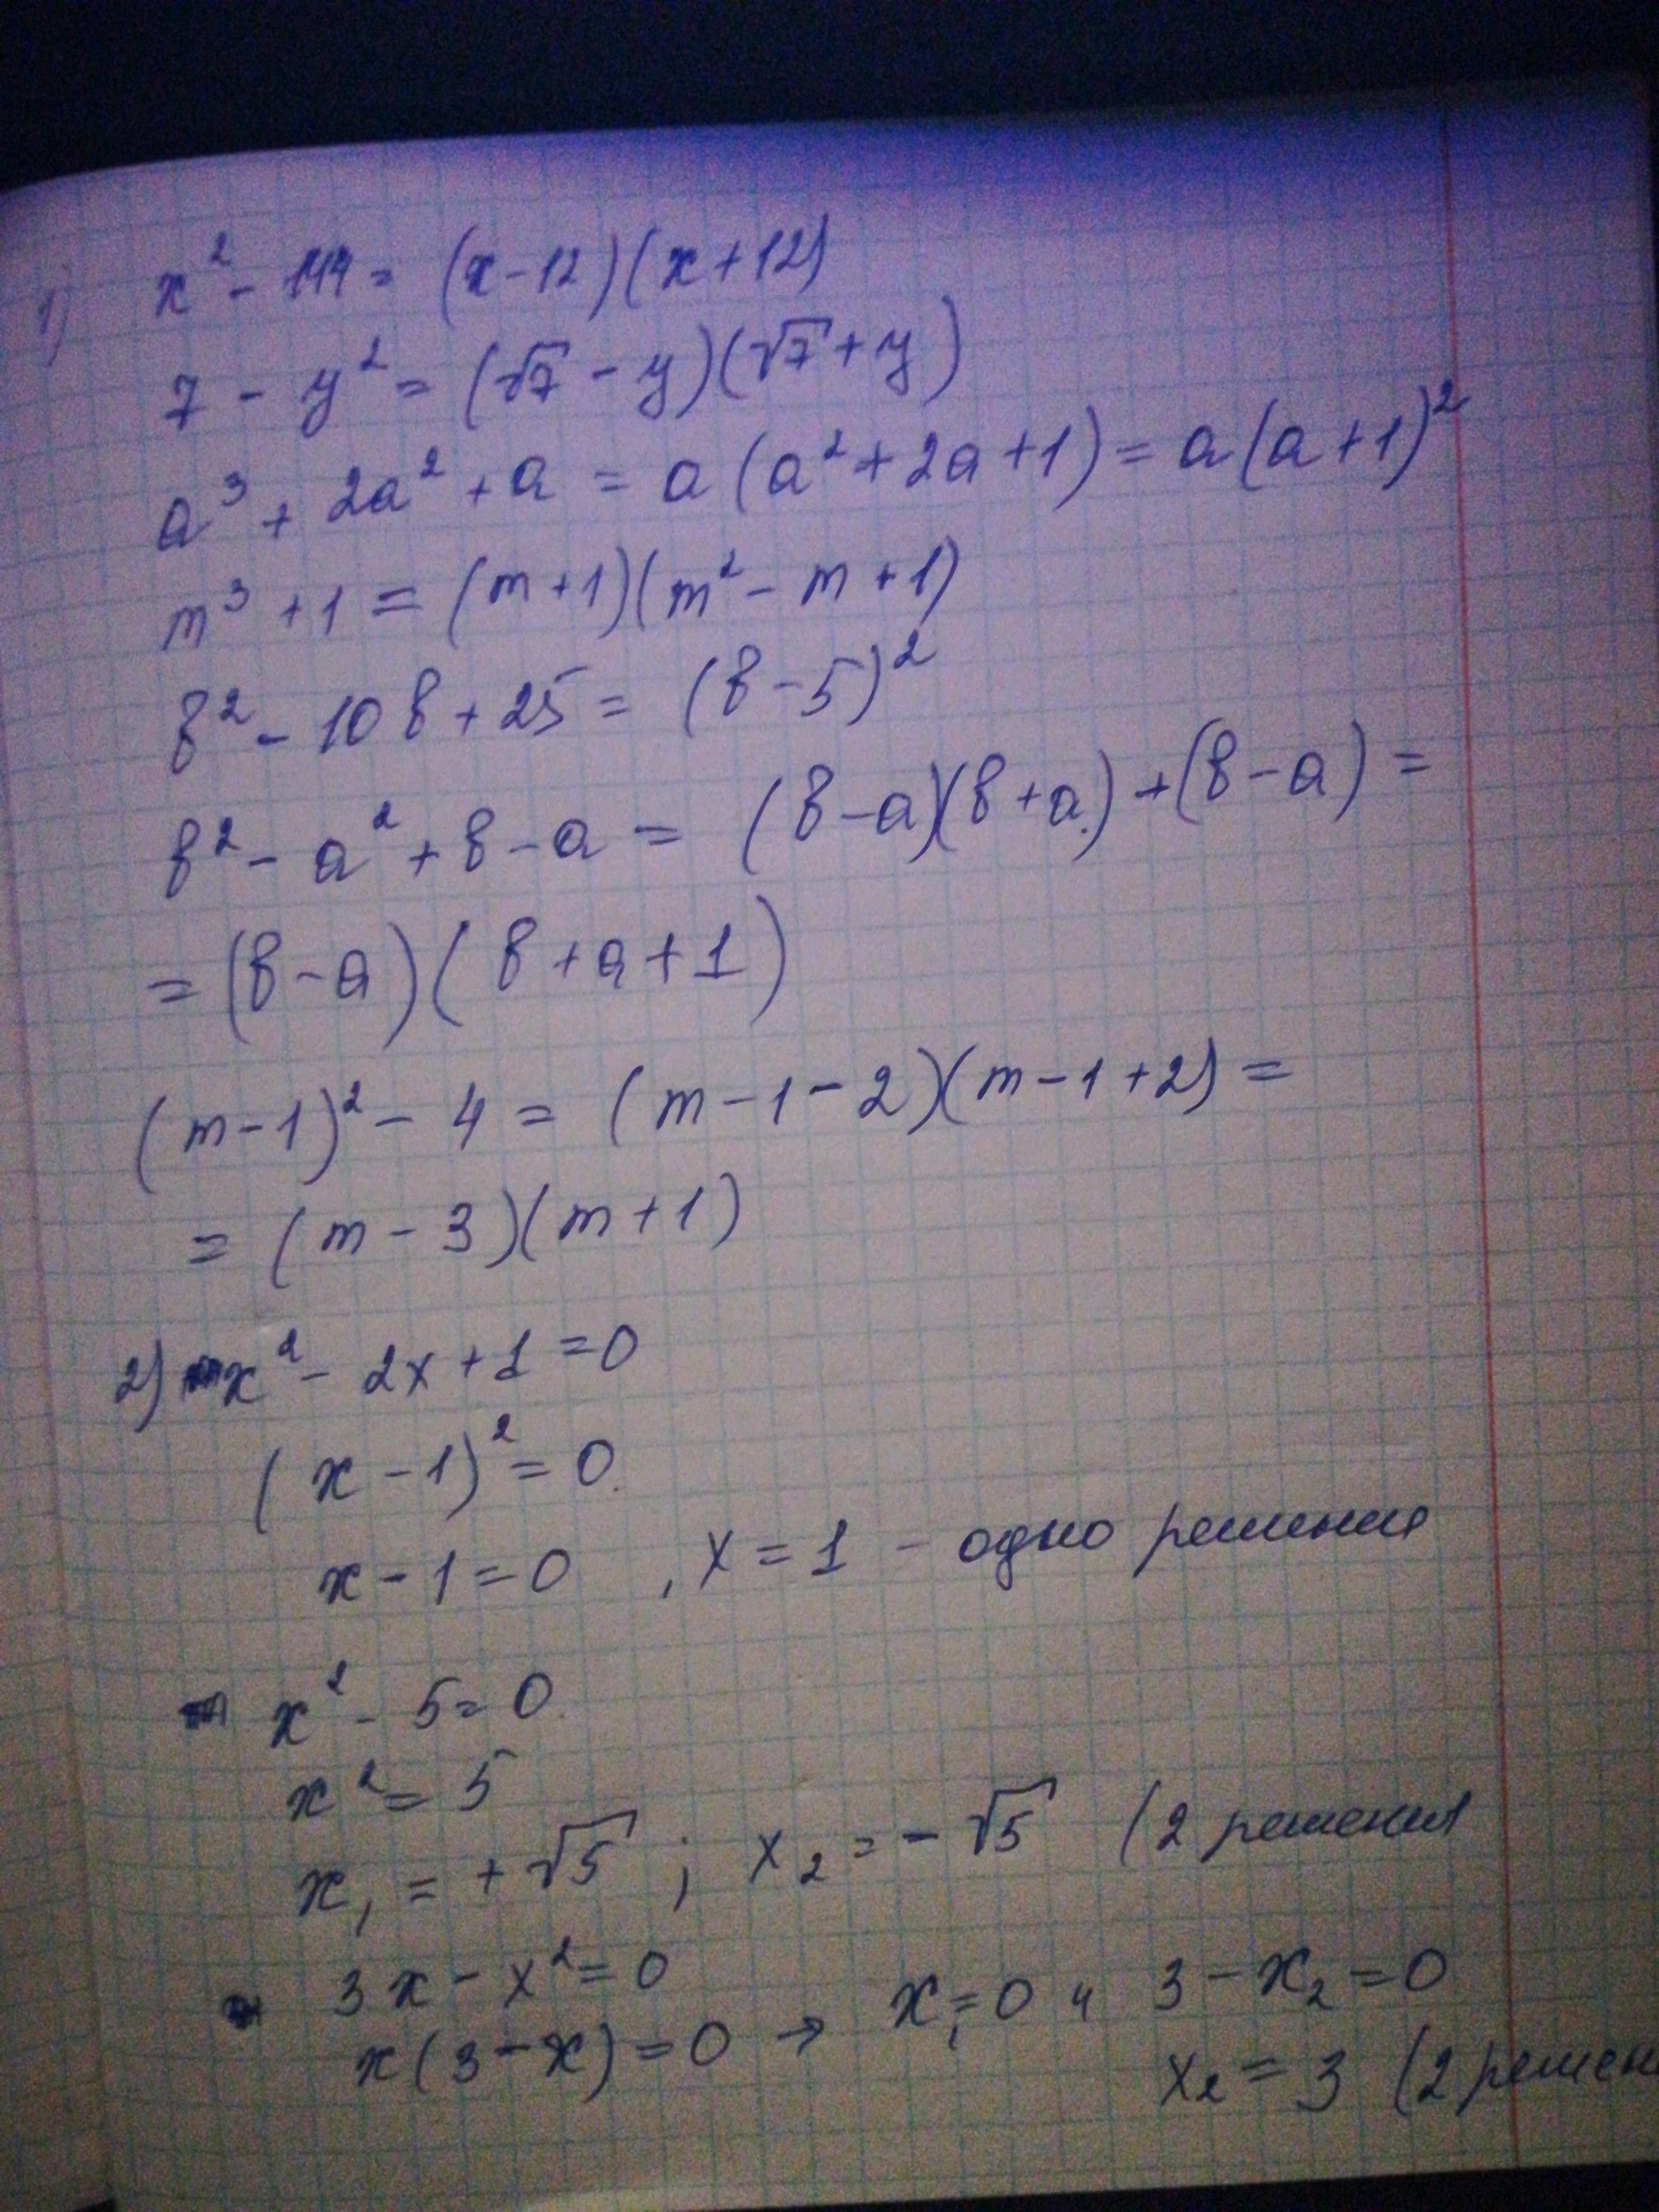 1) x² - 144 = (x-12)(x+12)
7 - y² = (√7 - y)(√7 + y)
a³ + 2a² + a = a(a² + 2a + 1) = a(a+1)²
m³ + 1 = (m+1)(m² - m + 1)
b² - 10b + 25 = (b-5)²
b² - a² + b - a = (b-a)(b+a) + (b-a) =
= (b-a)(b+a+1)
(m-1)² - 4 = (m-1-2)(m-1+2) =
= (m-3)(m+1)
2) x² - 2x + 1 = 0
(x-1)² = 0.
x - 1 = 0 , x = 1 - одно решение
x² - 5 = 0.
x² = 5
x₁ = +√5 ; x₂ = -√5 (2 решения
3x - x² = 0
x(3-x) = 0 → x₁ = 0 и 3 - x₂ = 0
x₂ = 3 (2 решен